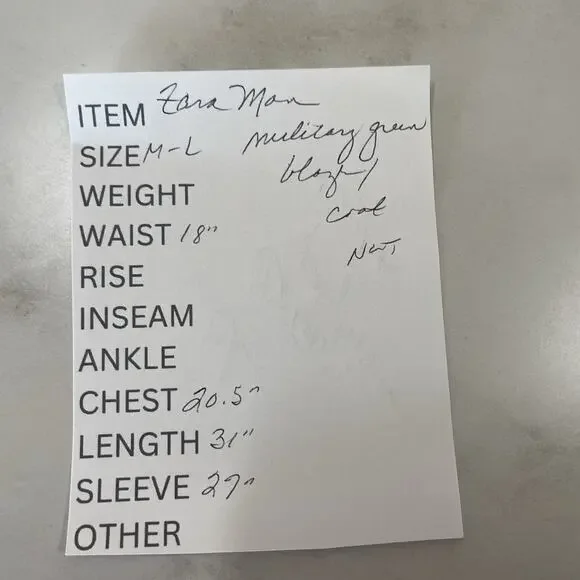 ITEM Zara Man
SIZE M-L military green
blazer/
WEIGHT
coat
WAIST 18"
NWT
RISE
INSEAM
ANKLE
CHEST 20.5"
LENGTH 31"
SLEEVE 27"
OTHER